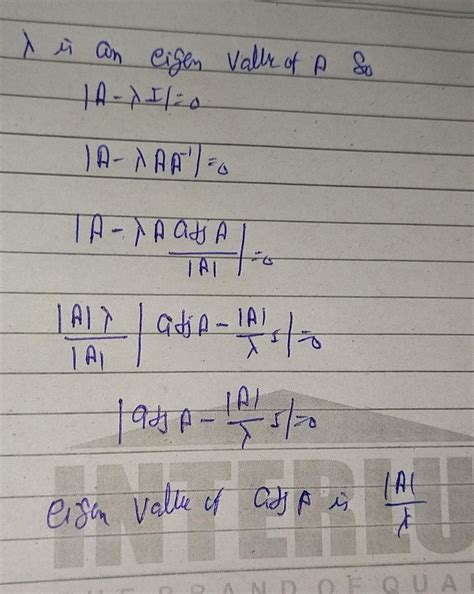 λ is an eigen value of A So
|A - λI| = 0
|A - λAA⁻¹| = 0
|A - λA adj A / |A| | = 0
|A|λ / |A| | adj A - |A|/λ I | = 0
| adj A - |A|/λ I | = 0
eigen value of adj A is |A|/λ
INTERLU
BRAND OF QUAL